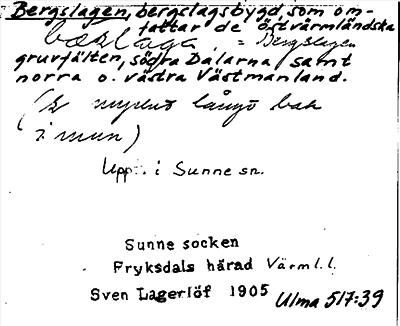 Bergslagen, bergslagsbygd, som om-
fattar de östvärmländska
bæṣlaga, = Bergslagen
gruvfälten, södra Dalarna samt
norra o. västra Västmanland.
långt bak
i mun)
Uppt. i Sunne sn.
Sunne socken
Fryksdals härad Värml. l.
Sven Lagerlöf 1905 Ulma 517:39